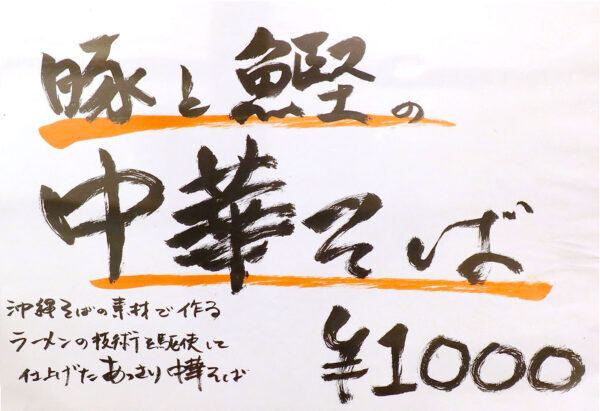 豚と鰹の
中華そば
沖縄そばの素材で作る
ラーメンの技術を駆使して
仕上げたあっさり中華そば
¥1000